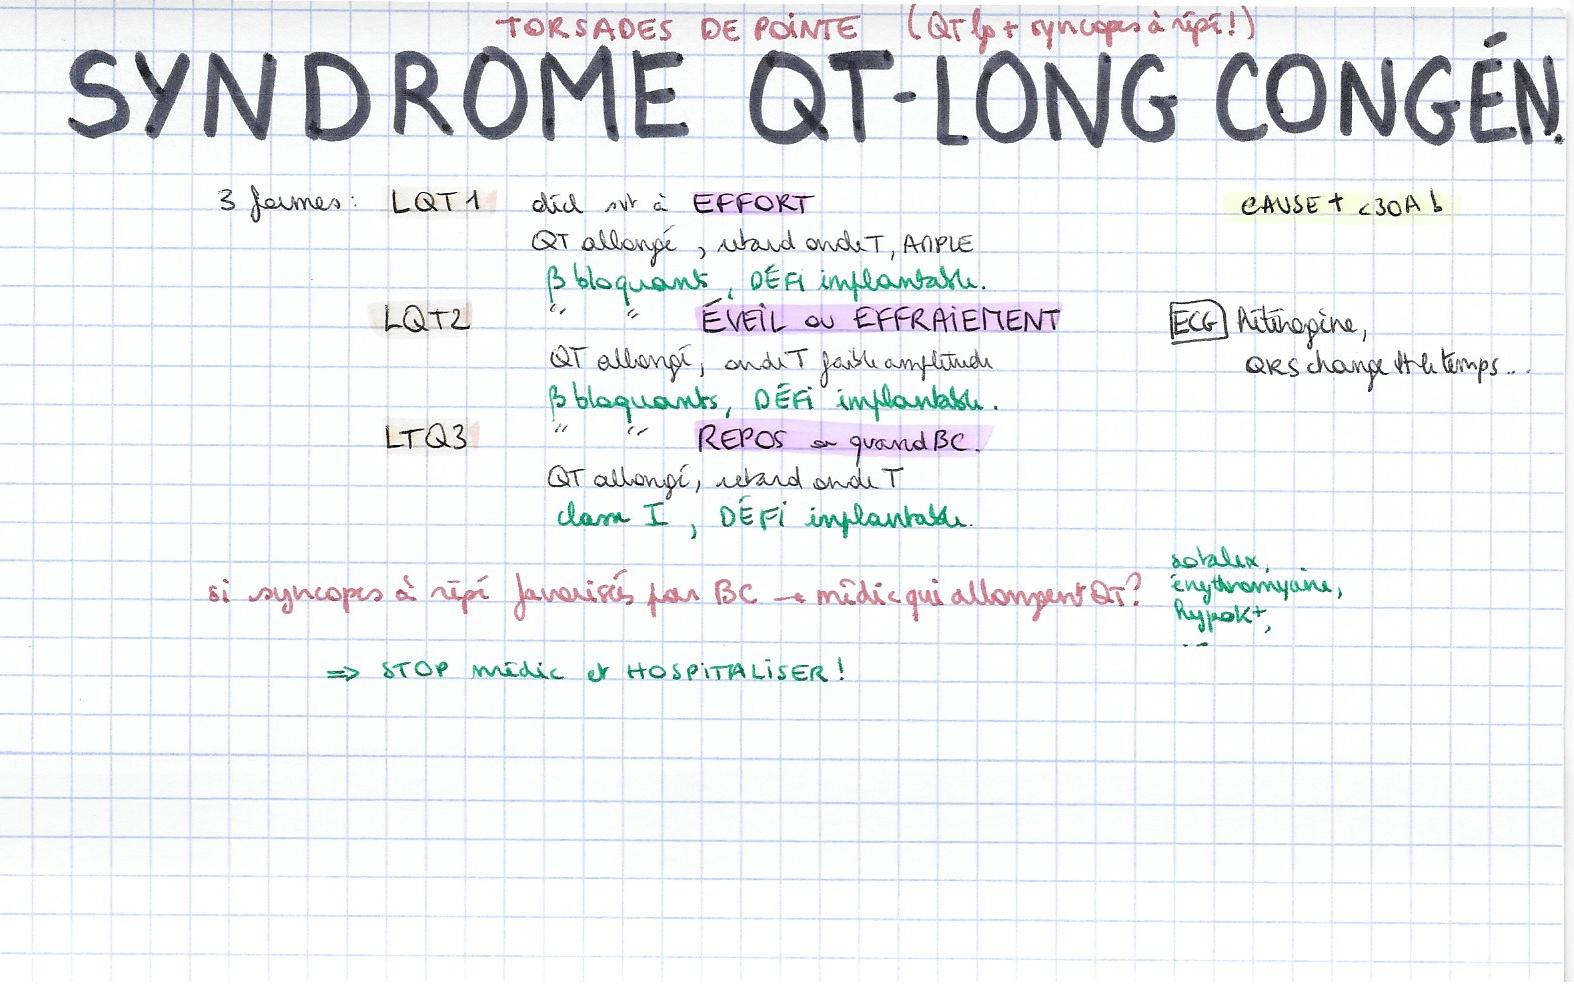 TORSADES DE POINTE (QT lg + syncopes à répé!)
SYNDROME QT-LONG CONGÉN.
3 formes: LQT1 décl svt à EFFORT
CAUSE + <30A!
QT allongé, retard onde T, AMPLE
β bloquants, DÉFi implantable.
LQT2 " " ÉVEIL ou EFFRAIEMENT
ECG Hétérogène,
QT allongé, onde T faible amplitude
QRS change tt le temps...
β bloquants, DÉFi implantable.
LTQ3 " " REPOS quand BC.
QT allongé, retard onde T
classe I, DÉFi implantable.
si syncopes à répé favorisés par BC → médic qui allongent QT?
sotalex,
érythromycine,
hypoK+,
...
⇒ STOP médic et HOSPITALISER!